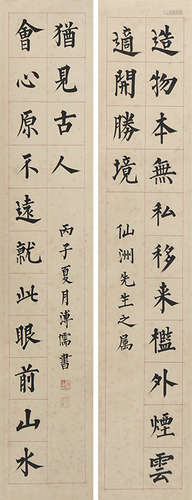 造物本無私移来檻外煙雲
適開勝境
仙洲先生之属
會心原不遠就此眼前山水
猶見古人
丙子夏月溥儒書